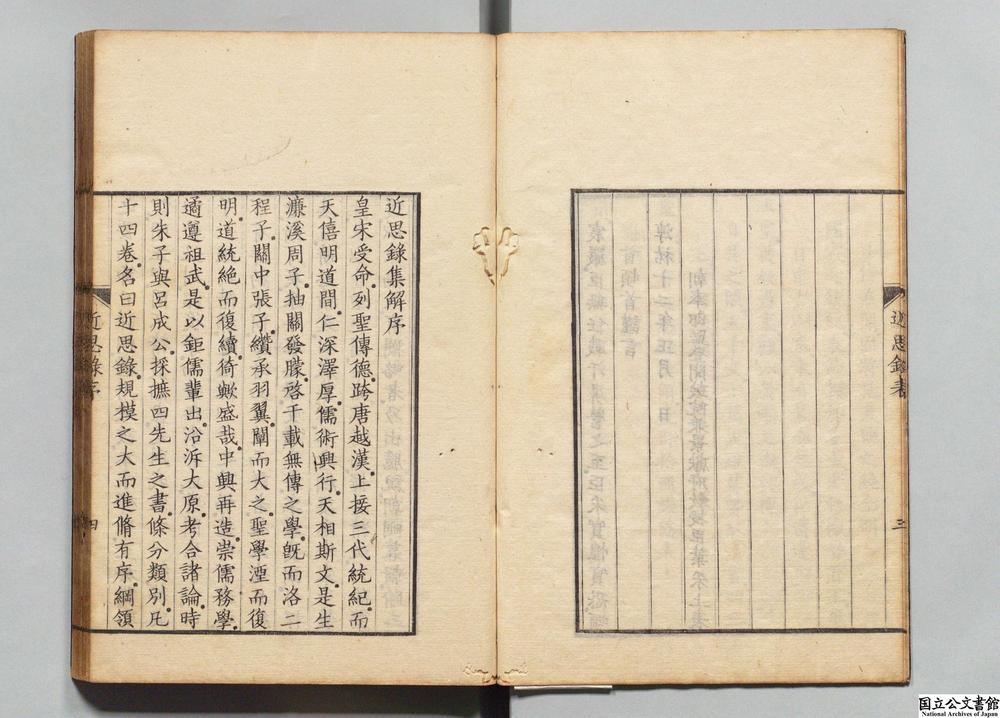 近思錄表
三
近思錄集解序
皇宋受命列聖傳德跨唐越漢上接三代統紀而
天僖明道間仁深澤厚儒術興行天相斯文是生
濂溪周子抽關發矇啓千載無傳之學旣而洛二
程子關中張子纘承羽翼闡而大之聖學湮而復
明道統絕而復續猗歟盛哉中興再造崇儒務學
遹遵祖武是以鉅儒輩出沿泝大原考合諸論時
則朱子與呂成公採摭四先生之書條分類別凡
十四卷名曰近思錄規模之大而進脩有序綱領
近思錄序
四
国立公文書館
National Archives of Japan